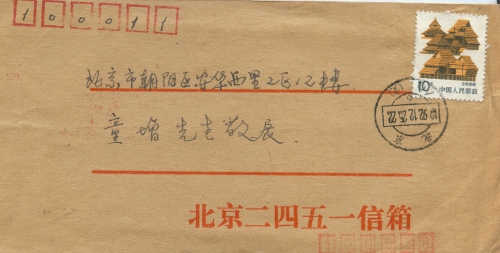 100011
北京市朝阳区安华西里2区12楼
童增先生敬展
10分 中国人民邮政
北京
1992.12.25.22
北京二四五一信箱